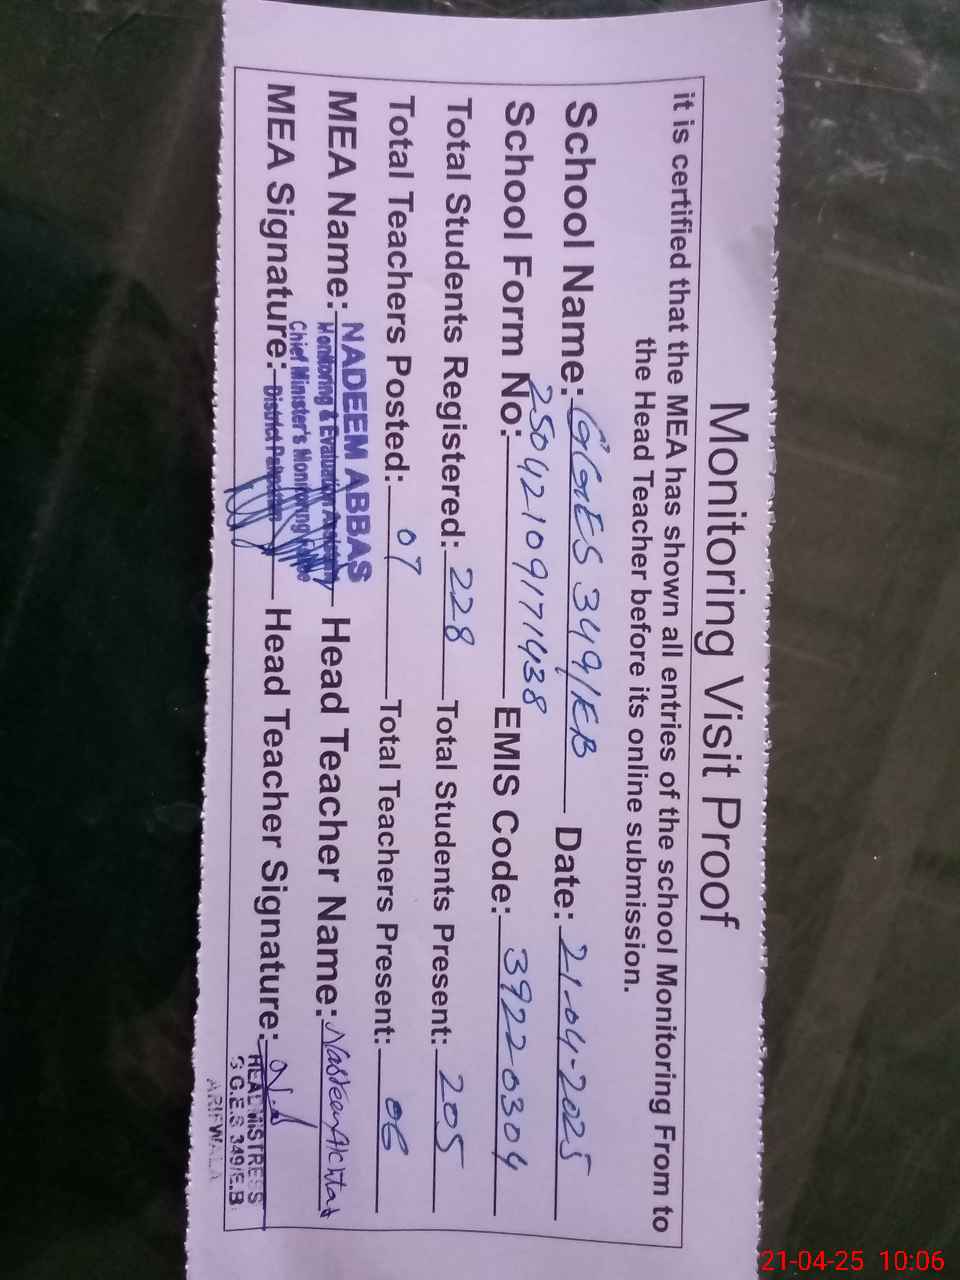 Monitoring Visit Proof
it is certified that the MEA has shown all entries of the school Monitoring From to
the Head Teacher before its online submission.
School Name: GGES 349/EB Date: 21-04-2025
School Form No: 25042109171438 EMIS Code: 39220304
Total Students Registered: 228 Total Students Present: 205
Total Teachers Posted: 07 Total Teachers Present: 06
MEA Name: NADEEM ABBAS Head Teacher Name: Nasreen Akhtar
Monitoring & Evaluation
Chief Minister's Monitoring
MEA Signature: District Head Teacher Signature:
HEADMISTRESS
G.G.E.S 349/E.B
ARIFWALA
21-04-25 10:06